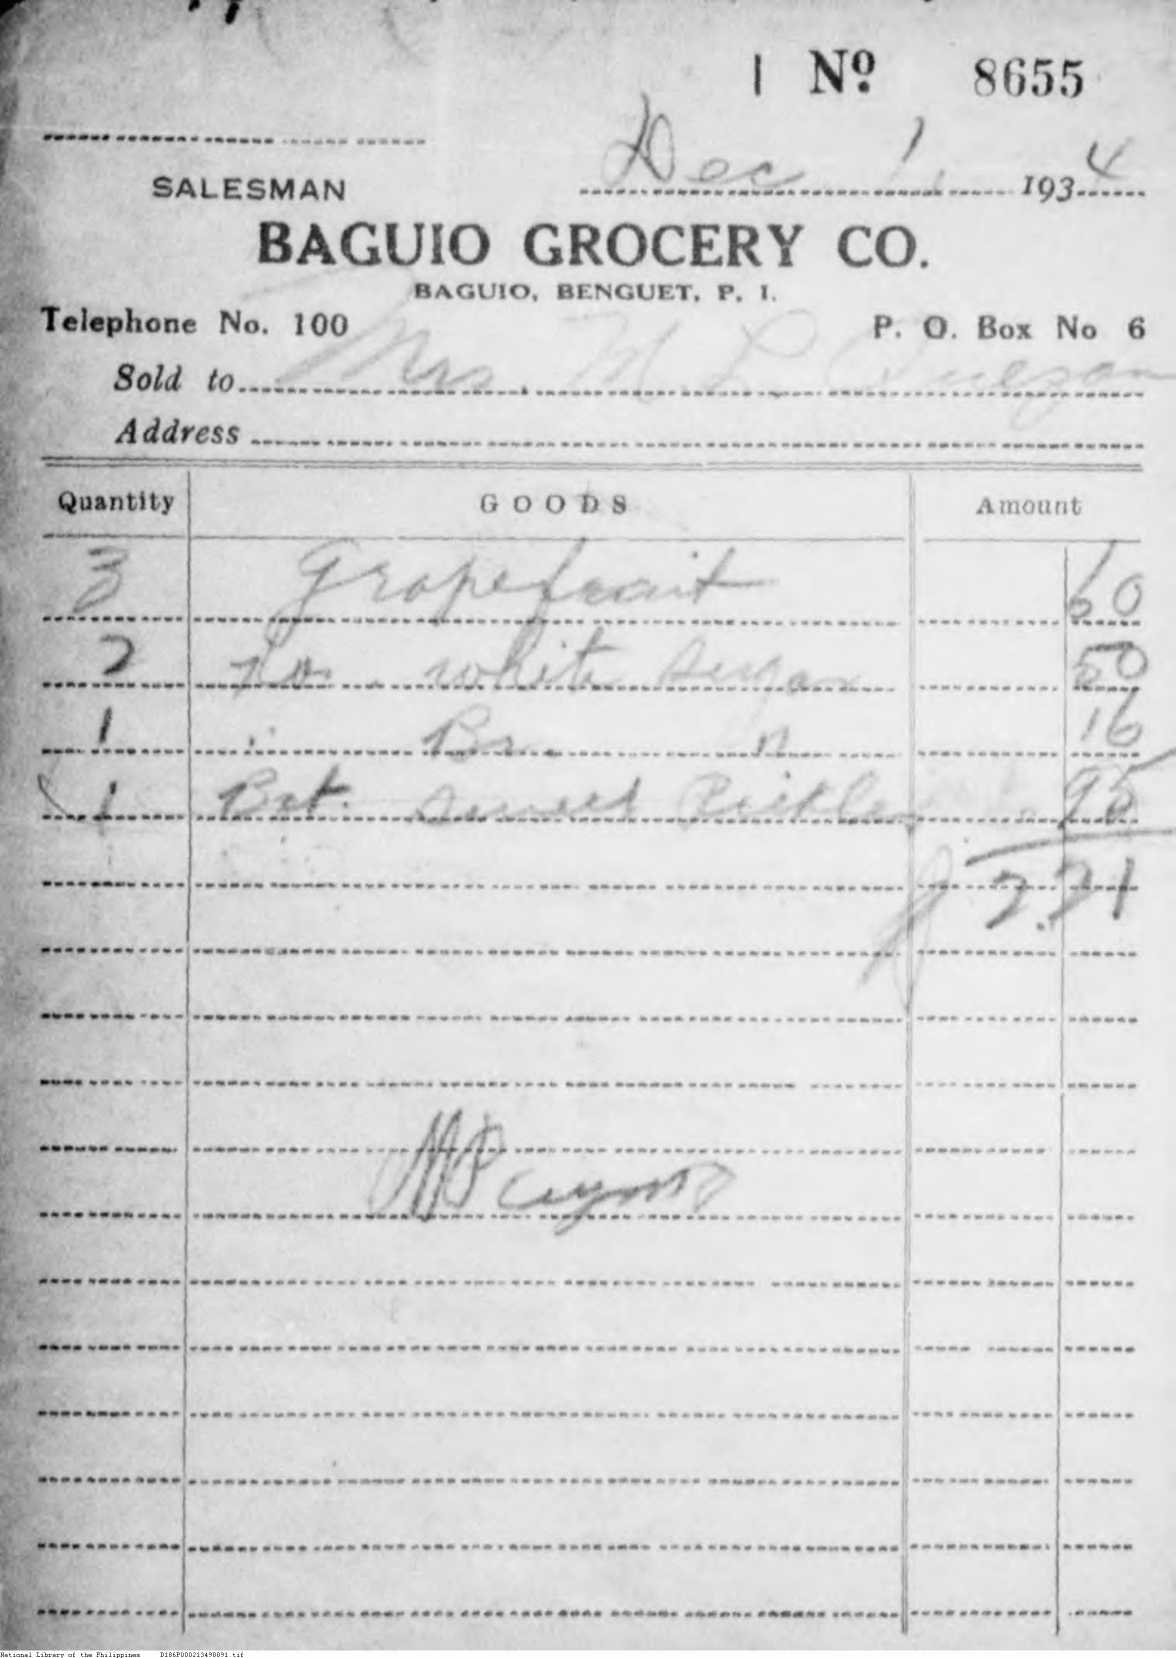 Nº 8655
Dec 1 1934
SALESMAN
BAGUIO GROCERY CO.
BAGUIO, BENGUET, P. I.
Telephone No. 100 P. O. Box No 6
Sold to Mrs. M L Quezon
Address
Quantity GOODS Amount
3 Grapefruit 60
2 white sugar 50
1 Br. " 16
1 Bot. sweet Pickles 95
2.21
National Library of the Philippines